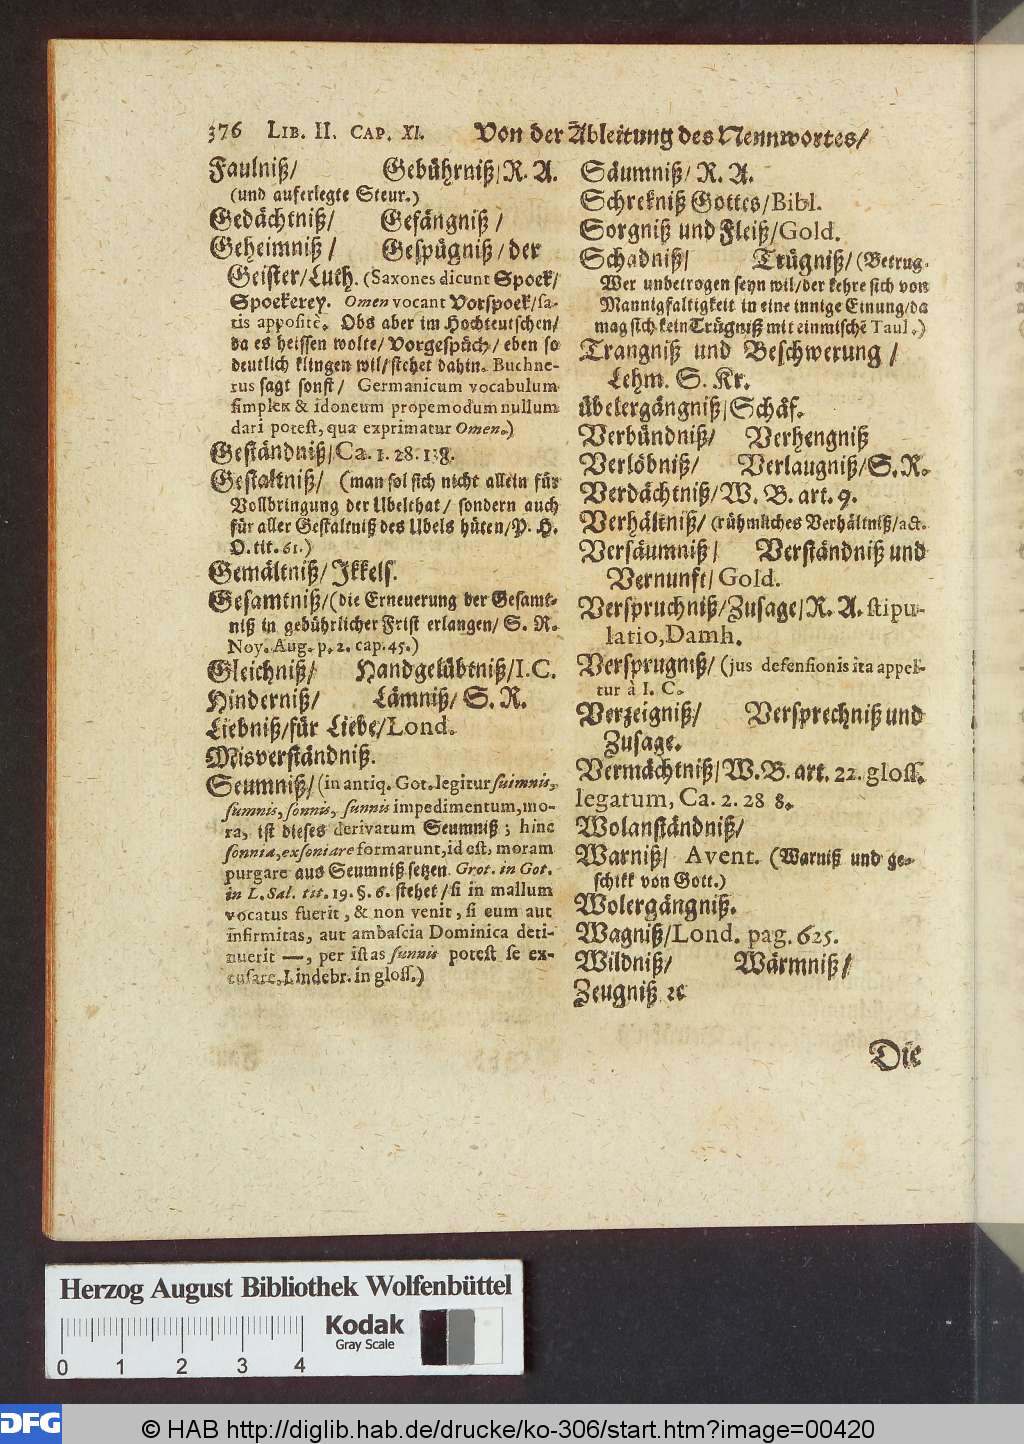 376 LIB. II. CAP. XI. Von der Ableitung des Nennwortes/
Faulniß/ Gebührniß/R. A.
(und auferlegte Steur.)
Gedächtniß/ Gefängniß/
Geheimniß/ Gespügniß/der
Geister/Luth. (Saxones dicunt Spoek/
Spoekerey. Omen vocant Vorspoek/sa-
tis appositè. Obs aber im Hochteutschen/
da es heissen wolte/Vorgespüch/eben so
deutlich klingen wil/stehet dahin. Buchne-
rus sagt sonst/ Germanicum vocabulum
simplex & idoneum propemodum nullum
dari potest, qua exprimatur Omen.)
Geständniß/Ca. 1. 28. 138.
Gestaltniß/ (man sol sich nicht allein für
Vollbringung der Ubelthat/ sondern auch
für aller Gestaltniß des Ubels hüten/P. H.
O. tit. 61.)
Gemältniß/Ikkels.
Gesamtniß/(die Erneuerung der Gesamt-
niß in gebührlicher Frist erlangen/ S. R.
Noy. Aug. p. 2. cap. 45.)
Gleichniß/ Handgelübtniß/I.C.
Hinderniß/ Lämniß/ S. R.
Liebniß/für Liebe/Lond.
Misverständniß.
Seumniß/(in antiq. Got. legitur suimnis,
sumnis, sonnis, sunnis impedimentum, mo-
ra, ist dieses derivatum Seumniß; hinc
sonnia, exsoniare formarunt, id est, moram
purgare aus Seumniß setzen. Grot. in Got.
in L. Sal. tit. 19. §. 6. stehet/ si in mallum
vocatus fuerit, & non venit, si eum aut
infirmitas, aut ambascia Dominica deti-
nuerit —, per istas sunnis potest se ex-
cusare, Lindebr. in gloss.)
Säumniß/ R. A.
Schrekniß Gottes/Bibl.
Sorgniß und Fleiß/Gold.
Schadniß/ Trügniß/(Betrug.
Wer unbetrogen seyn wil/der kehre sich von
Mannigfaltigkeit in eine innige Einung/da
mag sich kein Trügniß mit einmischē Taul.)
Trangniß und Beschwerung/
Lehm. S. Kr.
übelergängniß/Schäf.
Verbündniß/ Verhengniß
Verlöbniß/ Verlaugniß/S.R.
Verdächtniß/W. B. art. 9.
Verhältniß/ (rühmliches Verhältniß/act.
Versäumniß/ Verständniß und
Vernunft/Gold.
Verspruchniß/Zusage/R. A. stipu-
latio, Damh.
Versprugniß/(jus defensionis ita appel-
tur à I. C.
Verzeigniß/ Versprechniß und
Zusage.
Vermächtniß/W.B. art. 22. gloss.
legatum, Ca. 2. 28 8.
Wolanständniß/
Warniß/ Avent. (Warniß und ge-
schikk von Gott.)
Wolergängniß.
Wagniß/Lond. pag. 625.
Wildniß/ Wärmniß/
Zeugniß ꝛc
Die
Herzog August Bibliothek Wolfenbüttel
Kodak
Gray Scale
0 1 2 3 4
DFG © HAB http://diglib.hab.de/drucke/ko-306/start.htm?image=00420